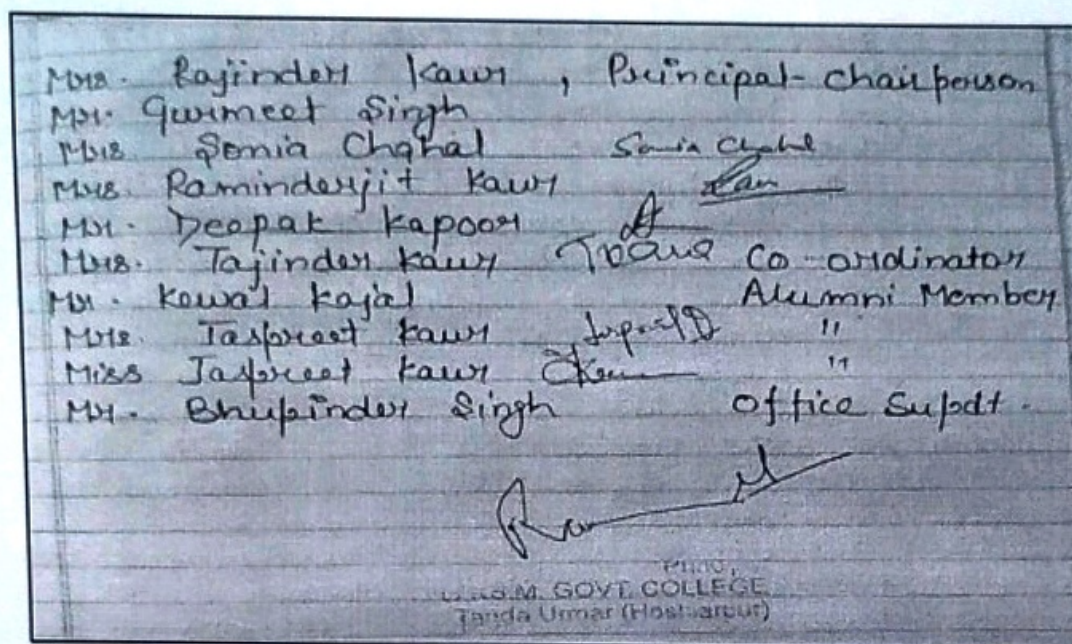 Mrs. Rajinder Kaur, Principal-Chairperson
Mr. Gurmeet Singh
Mrs Sonia Chahal Sonia Chahal
Mrs Raminderjit Kaur
Mr. Deepak Kapoor
Mrs. Tajinder Kaur Co-ordinator
Mr. Kewal Kajal Alumni Member
Mrs. Jaspreet Kaur "
Miss Jaspreet Kaur "
Mr. Bhupinder Singh Office Supdt.
GOVT. COLLEGE
Tanda Urmar (Hoshiarpur)